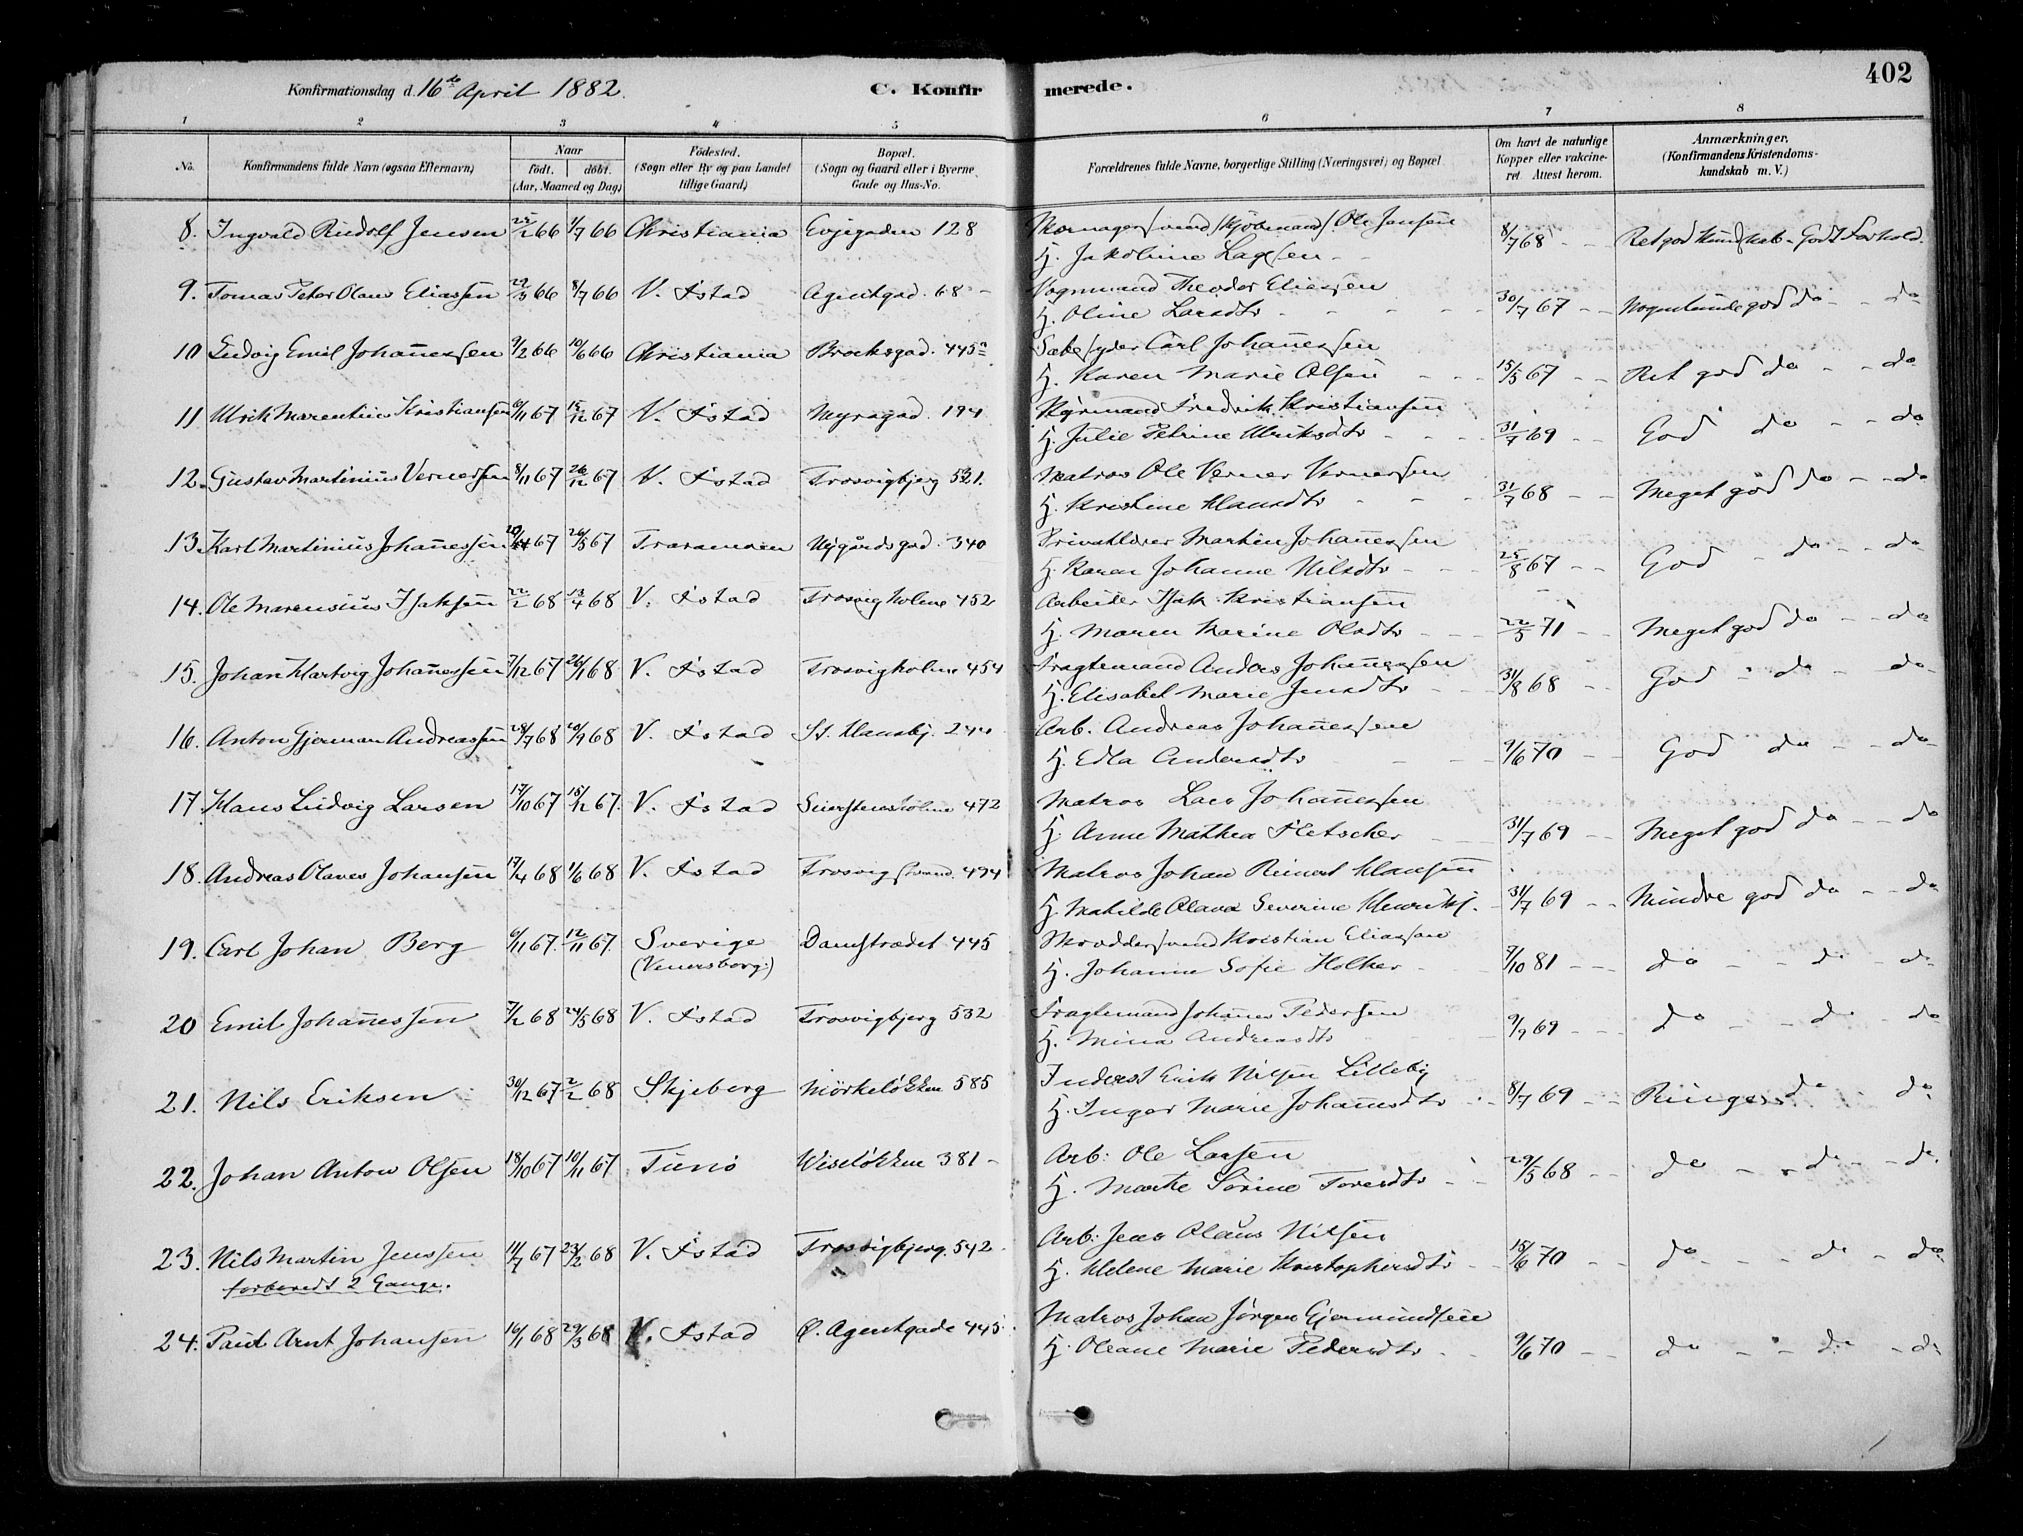 Konfirmationsdag d. 16de April 1882.
C. Konfirmerede.
402
1 2 3 4 5 6 7 8
No.
Konfirmandens fulde Navn (ogsaa Efternavn)
Naar
født. døbt.
(Aar, Maaned og Dag)
Fødested.
(Sogn eller By og paa Landet
tillige Gaard)
Bopæl.
(Sogn og Gaard eller i Byerne
Gade og Hus-No.
Forældrenes fulde Navne, borgerlige Stilling (Næringsvei) og Bopæl
Om havt de naturlige
Kopper eller vakcine-
ret. Attest herom.
Anmærkninger.
(Konfirmandens Kristendoms-
kundskab m. V.)
8. Ingvald Rudolf Jensen 25/2 66 1/7 66 Christiania Evjegaden 128 Ole Jensen 8/7 68 Ret god Kundskab - Godt Forhold.
H. Jakobine
9. Tomas Peter Olaus Eliassen 22/3 66 8/7 66 V. Fstad Agentgad. 68 Vognmand Theodor Eliassen
H. Oline Larsdtr 30/7 67 Nogenlunde god do do
10 Ludvig Emil Johanessen 9/2 66 10/6 66 Christiania Brocksgad. 445 Carl Johanessen
H. Karen Marie Olsen 15/5 67 Ret god do do
11 Ulrik Marentius Kristiansen 6/11 67 15/12 67 V. Fstad Myragad. 194 Fredrik Kristiansen
H. Julie Petrine Ulriksdtr 31/7 69 God do do
12. Gustav Martinius Vernersen 8/11 67 26/12 67 V. Fstad Trosvigbjerg 521. Matros Ole Verner Vernersen
H. Kristine Hansdtr 31/7 68 Meget god do do
13. Karl Martinius Johanessen 67 26/5 67 Nygårdsgad. 340 Privatlærer Martin Johanessen
H. Karen Johanne Nilsdtr 25/8 67 God do do
14. Ole Marensius Isaksen 22/2 68 13/4 68 V. Fstad Trosvigholme 452 Arbeider Isak Kristiansen
H. Maren Karine Olsdtr 22/5 71 Meget god do do
15. Johan Hartvig Johanessen 7/12 67 26/1 68 V. Fstad Trosvigholme 454 Fragtemand Anders Johanessen
H. Elisabet Marie Jensdtr 31/8 68 God do do
16. Anton Gjerman Andreassen 28/7 68 20/9 68 V. Fstad St. Hansbj. 244 Arb. Andreas Johanessen
H. Edla Andersdtr 9/6 70 God do do
17. Hans Ludvig Larsen 17/10 67 15/12 67. V. Fstad Seierstensholme 472 Matros Lars Johanessen
H. Anne Mathea Fletscher 31/7 69 Meget god do do
18. Andreas Olaves Johansen 17/4 68 1/6 68 V. Fstad Trosvigstrand. 494 Matros Johan Reinert Hansen
H. Matilde Olava Severine Henriks. 31/7 69 Mindre god do do
19. Carl Johan Berg 6/11 67. 12/11 67. Sverige Damstrædet 445 Skræddersvend Kristian Eliassen
(Venersborg) H. Johanne Sofie Holker 7/10 81 do do do
20 Emil Johanessen 7/2 68 24/5 68 V. Fstad Trosvigbjerg 532 Fragtemand Johannes Pedersen
H. Mina Andreasdtr 9/9 69 do do do
21. Nils Eriksen 30/12 67 2/2 68 Skjeberg Mørkeløkken 585 Inderst Erik Nilsen Lilleby
H. Inger Marie Johannesdtr 8/7 69 Ringe do do
22. Johan Anton Olsen 18/10 67 10/11 67. Tunø Wiseløkken 381 Arb: Ole Larsen
H. Marthe Sørine Toresdtr 29/5 68 do do do.
23. Nils Martin Jenssen 11/7 67 23/2 68 V. Fstad Trosvigbjerg. 542 Arb: Jens Olaus Nilsen
forberedt 2 Gange. H. Helene Marie Kristophersdtr 15/6 70 do do do
24. Paul Arnt Johansen 16/1 68 29/3 68 V. Fstad Ø. Agentgade 445 Matros Johan Jørgen Gjermundsen
H. Oleane Marie Pedersdtr 9/6 70 do do do